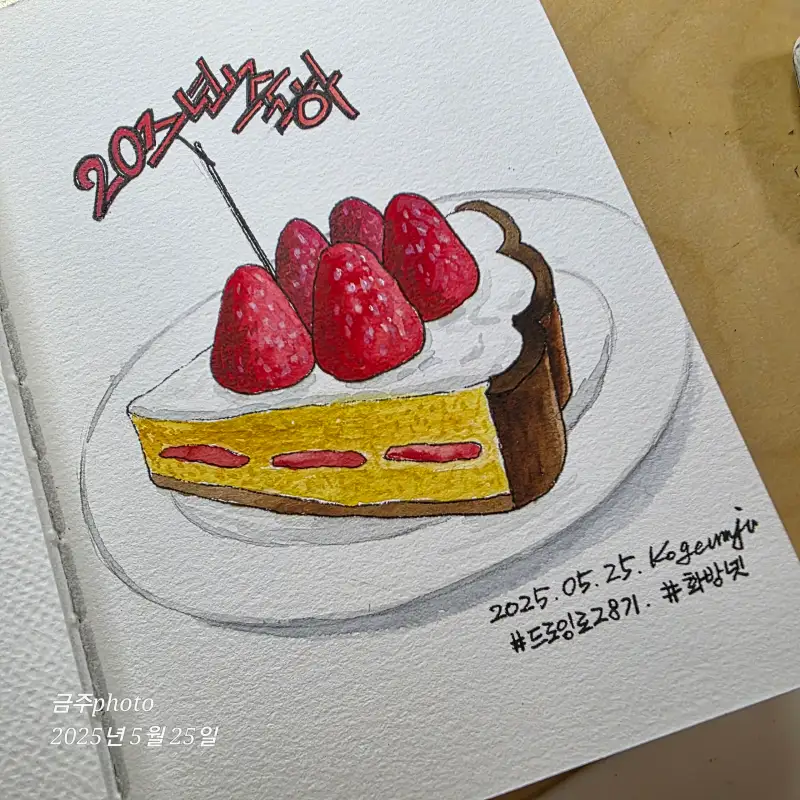 20주년축하
2025.05.25.Kogeumju
#드로잉로28기. #화방넷
금주photo
2025년 5월 25일